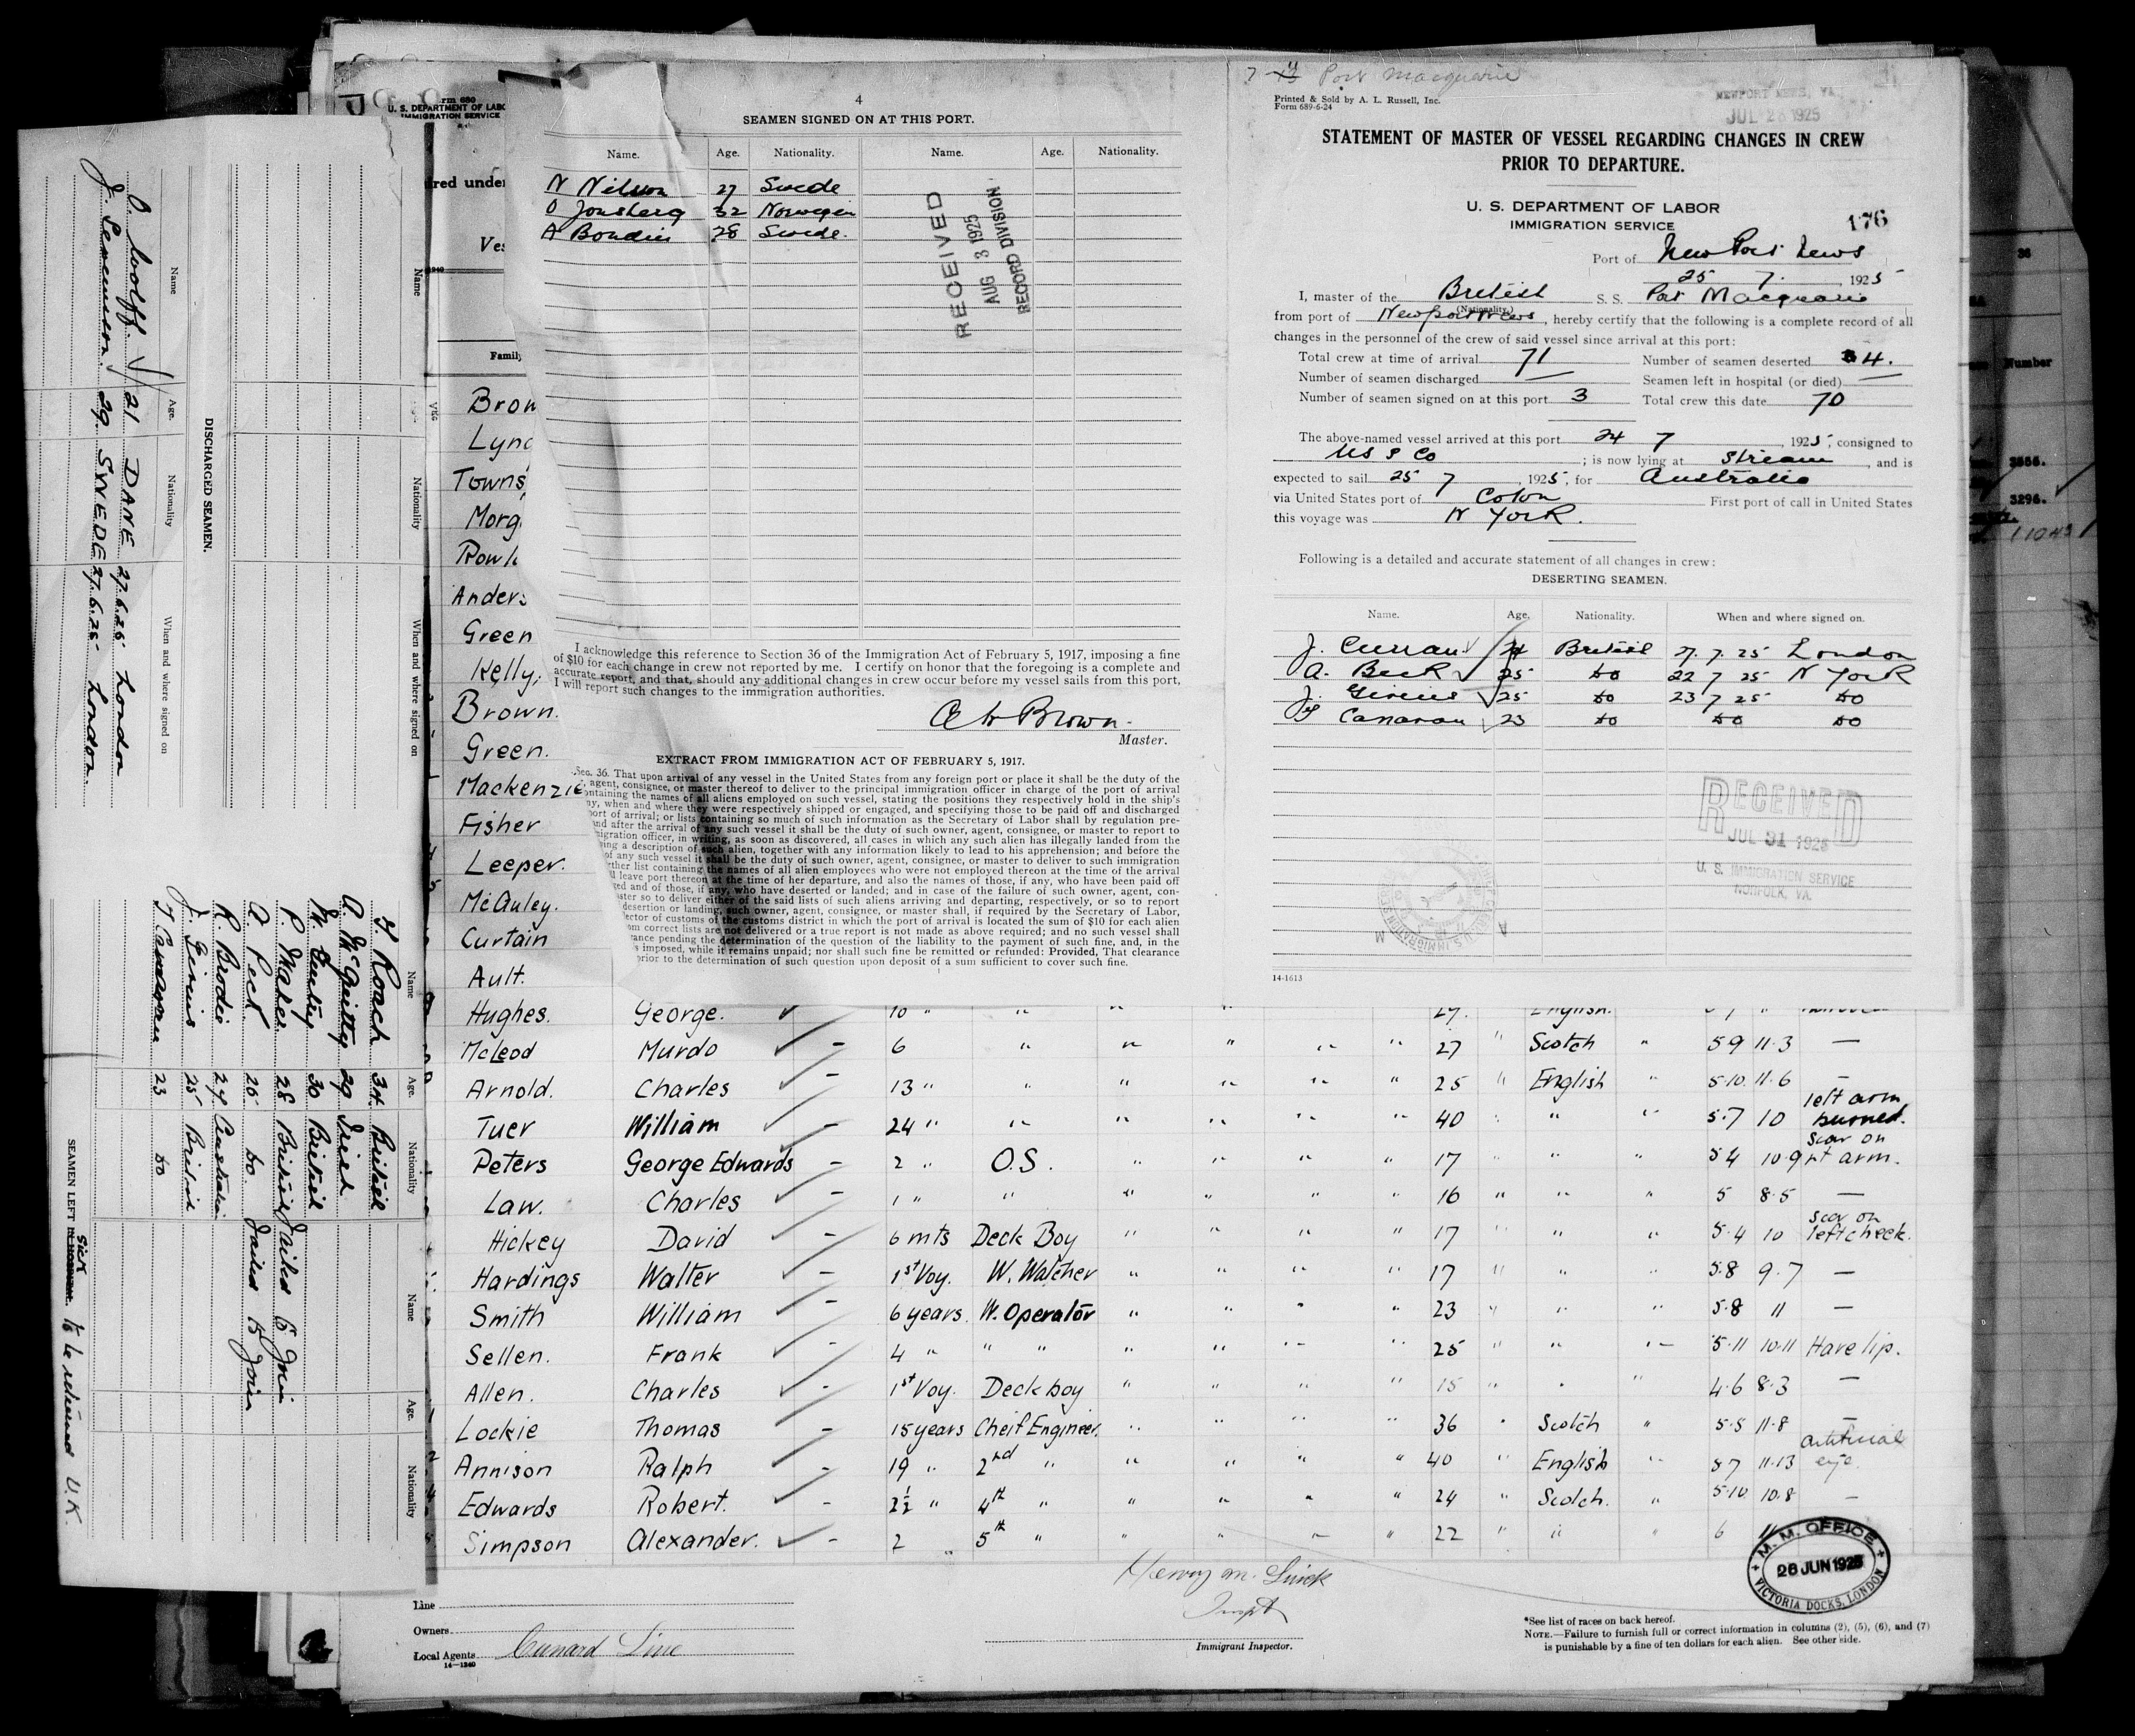 7 Port Macquarie
Printed & Sold by A. L. Russell, Inc.
Form 689-6-24
NEWPORT NEWS, VA.
JUL 28 1925
STATEMENT OF MASTER OF VESSEL REGARDING CHANGES IN CREW
PRIOR TO DEPARTURE.
U. S. DEPARTMENT OF LABOR
IMMIGRATION SERVICE
176
Port of New Port News
25 7. 1925
I, master of the British S. S. Port Macquarie
(Nationality)
from port of Newport News, hereby certify that the following is a complete record of all
changes in the personnel of the crew of said vessel since arrival at this port:
Total crew at time of arrival 71 Number of seamen deserted 4.
Number of seamen discharged — Seamen left in hospital (or died) —
Number of seamen signed on at this port 3 Total crew this date 70
The above-named vessel arrived at this port 24 7, 1925, consigned to
U S S Co; is now lying at Stream, and is
expected to sail 25 7, 1925, for Australia
via United States port of Colon First port of call in United States
this voyage was N York.
Following is a detailed and accurate statement of all changes in crew:
DESERTING SEAMEN.
Name. Age. Nationality. When and where signed on.
J. Curran 24 British 27. 7. 25 London
A. Beck 25 do 22 7 25 N York
J. 25 do 23 7 25 do
23 do do do
RECEIVED
JUL 31 1925
U. S. IMMIGRATION SERVICE
NORFOLK, VA.
14-1613
4
SEAMEN SIGNED ON AT THIS PORT.
Name. Age. Nationality. Name. Age. Nationality.
N Nilson 27 Swede
O Jonsberg 32 Norwegen
A 28 Swede.
RECEIVED
AUG 3 1925
RECORD DIVISION
I acknowledge this reference to Section 36 of the Immigration Act of February 5, 1917, imposing a fine
of $10 for each change in crew not reported by me. I certify on honor that the foregoing is a complete and
accurate report, and that, should any additional changes in crew occur before my vessel sails from this port,
I will report such changes to the immigration authorities.
Brown.
Master.
EXTRACT FROM IMMIGRATION ACT OF FEBRUARY 5, 1917.
Sec. 36. That upon arrival of any vessel in the United States from any foreign port or place it shall be the duty of the
agent, consignee, or master thereof to deliver to the principal immigration officer in charge of the port of arrival
ntaining the names of all aliens employed on such vessel, stating the positions they respectively hold in the ship's
ny, when and where they were respectively shipped or engaged, and specifying those to be paid off and discharged
ort of arrival; or lists containing so much of such information as the Secretary of Labor shall by regulation pre-
nd after the arrival of any such vessel it shall be the duty of such owner, agent, consignee, or master to report to
migration officer, in writing, as soon as discovered, all cases in which any such alien has illegally landed from the
ing a description of such alien, together with any information likely to lead to his apprehension; and before the
of any such vessel it shall be the duty of such owner, agent, consignee, or master to deliver to such immigration
rther list containing the names of all alien employees who were not employed thereon at the time of the arrival
ll leave port thereon at the time of her departure, and also the names of those, if any, who have been paid off
ged and of those, if any, who have deserted or landed; and in case of the failure of such owner, agent, con-
ster so to deliver either of the said lists of such aliens arriving and departing, respectively, or so to report
desertion or landing, such owner, agent, consignee, or master shall, if required by the Secretary of Labor,
lector of customs of the customs district in which the port of arrival is located the sum of $10 for each alien
om correct lists are not delivered or a true report is not made as above required; and no such vessel shall
rance pending the determination of the question of the liability to the payment of such fine, and, in the
s imposed, while it remains unpaid; nor shall such fine be remitted or refunded: Provided, That clearance
prior to the determination of such question upon deposit of a sum sufficient to cover such fine.
rm 680
U. S. DEPARTMENT OF LABO
IMMIGRATION SERVICE
red under
Ves
Family
Brow
Lync
Towns
Morg
Rowl
Anders
Green
Kelly,
Brown.
Green.
Mackenzie
Fisher
Leeper.
McAuley.
Curtain
Ault.
Hughes. George. 10 " " " " 27. English.
McLeod Murdo – 6 " " " " " 27 " Scotch " 5 9 11·3 —
Arnold. Charles – 13 " " " " " " 25 " English " 5·10 11·6 —
Tuer William – 24 " " " " " " 40 " " " 5·7 10 left arm burned.
Peters George Edwards – 2 " O.S. " " " " 17 " " " 5 4 10·9 scar on rt arm.
Law. Charles – 1 " " " " " " 16 " " " 5 8·5 —
Hickey David – 6 mts Deck Boy " " " " 17 " " " 5·4 10 scar on left cheek.
Hardings Walter – 1st Voy. W. Watcher " " " " 17 " " " 5·8 9·7 —
Smith William – 6 years. W. Operator " " " " 23 " " " 5·8 11 —
Sellen. Frank – 4 " " " " " " " 25 " " " 5·11 10·11 Hare lip.
Allen. Charles – 1st Voy. Deck boy " " " " 15 " " " 4·6 8·3 —
Lockie Thomas – 15 years Cheif Engineer. " " " " 36 " Scotch " 5·5 11·8 —
Annison Ralph – 19 " 2nd " " " " " 40 " English " 5 7 11·13 artificial eye.
Edwards Robert. – 2½ " 4th " " " " " 24 " Scotch. " 5·10 10·8 —
Simpson Alexander. – 2 " 5th " " " " " 22 " " " 6 11
M. M. OFFICE
26 JUN 1925
VICTORIA DOCKS, LONDON
Line
Owners
Local Agents Cunard Line
14—1240
Immigrant Inspector.
*See list of races on back hereof.
NOTE.—Failure to furnish full or correct information in columns (2), (5), (6), and (7)
is punishable by a fine of ten dollars for each alien. See other side.
DISCHARGED SEAMEN.
Name Age. Nationality When and where signed on
O. Woolff. 21 DANE 27.6.25 London
J. 29. SWEDE 27.6.25 London.
Name Nationality When and where signed on
SEAMEN LEFT IN HOSPITAL. Sick to be returned U.K.
Name Age. Nationality Name Age. Nationality
Roach 34. British
A. McGeitty 29 Irish
M. 30 British
P. Maher 28 British Failed to Join
A. Peck 25 do. Failed to Join
R. Brodie 24 Australia
J. 25 British
23 do
Number
3296.